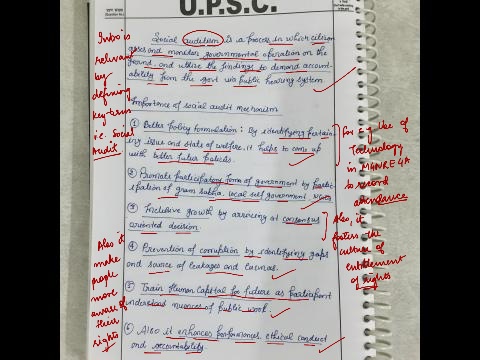 U.P.S.C.
Social auditism is a process in which citizen
and monitors governmental operation on the
ground and utilize the findings to demand account-
ability from the govt via public hearing system
Importance of social audit mechanism
① Better policy formulation : By identifying
issue and state of welfare, it helps to come up
with better future policies.
② Promote participatory form of government by partic-
ipation of gram sabha, local self government
③ Inclusive growth by arriving at consensus
oriented decision.
④ Prevention of corruption by identifying gaps
and source of leakages and
⑤ Train human capital for future as participant
understand nuances of public work.
⑥ Also it enhances performance, ethical conduct
and accountability.
Intro is
relevant
by
defining
key-term
i.e. Social
Audit.
Also it
make
people
more
aware of
their
rights
For e.g. Use of
Technology
in MGNREGA
to record
attendance
Also, it
fosters the
culture of
entitlement
of rights